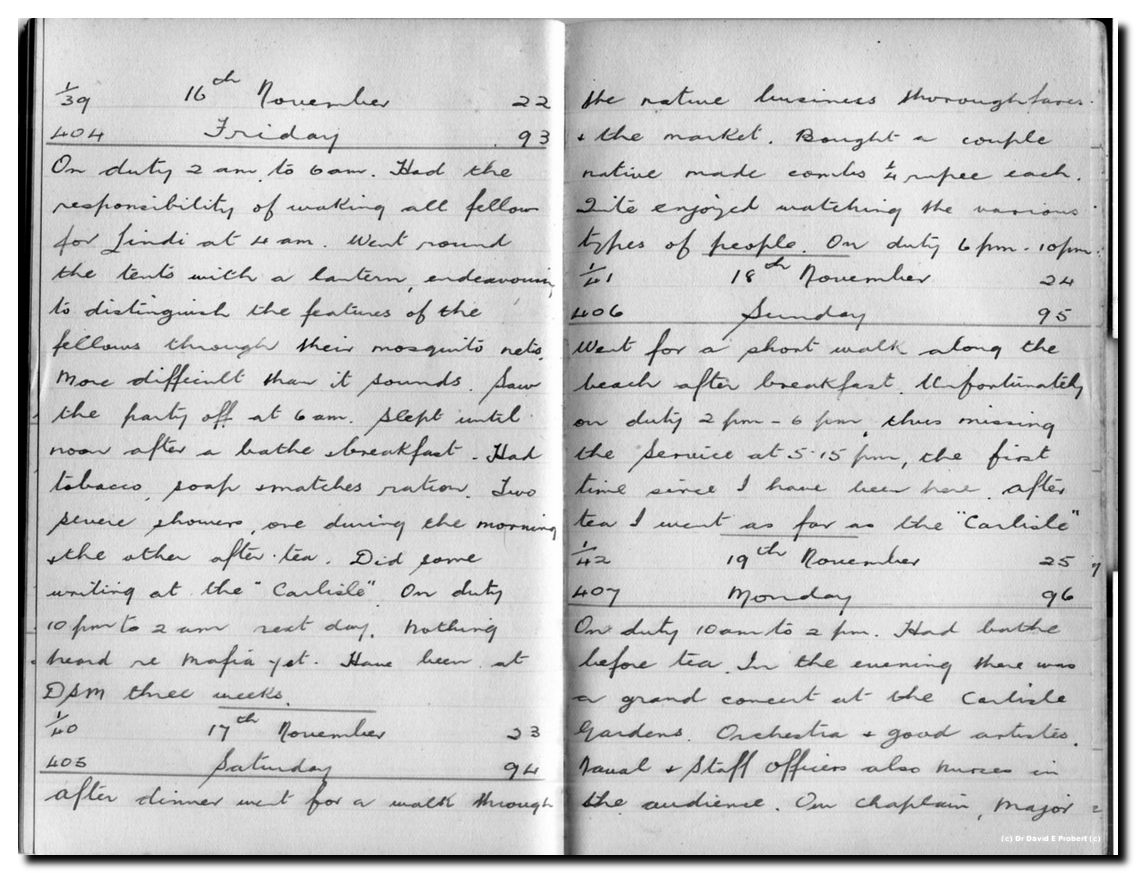 1/39 16th November 22
404 Friday 93
On duty 2 am to 6 am. Had the
responsibility of waking all fellows
for Lindi at 4 am. Went round
the tents with a lantern, endeavouring
to distinguish the features of the
fellows through their mosquito nets.
More difficult than it sounds. Saw
the party off at 6 am. Slept until
noon after a bathe & breakfast. Had
tobacco, soap & matches ration. Two
severe showers, one during the morning
& the other after tea. Did some
writing at the "Carlisle" On duty
10 pm to 2 am next day. Nothing
heard re Mafia yet. Have been at
DSM three weeks.
1/40 17th November 23
405 Saturday 94
After dinner went for a walk through
the native business thoroughfares
& the market. Bought a couple
native made combs 1/4 rupee each.
Quite enjoyed watching the various
types of people. On duty 6 pm - 10 pm.
1/41 18th November 24
406 Sunday 95
Went for a short walk along the
beach after breakfast. Unfortunately
on duty 2 pm - 6 pm, thus missing
the Service at 5.15 pm, the first
time since I have been here. After
tea I went as far as the "Carlisle"
1/42 19th November 25
407 Monday 96
On duty 10 am to 2 pm. Had bathe
before tea. In the evening there was
a grand concert at the Carlisle
Gardens. Orchestra & good artistes.
Naval & Staff Officers also Nurses in
the audience. Our chaplain, Major
(c) Dr David E Probert (c)